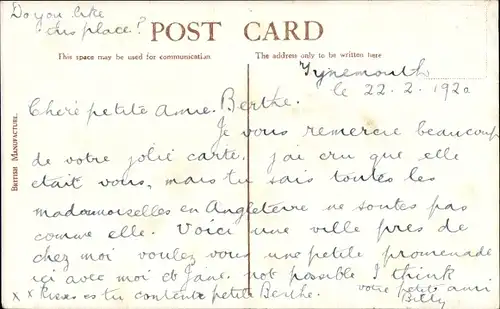 Do you like
this place?
POST CARD
This space may be used for communication.
The address only to be written here
BRITISH MANUFACTURE.
Tynemouth
le 22.2.1920
Cheré petite Amie. Berthe.
Je vous remercie beaucoup
de votre jolie carte. j'ai cru que elle
etait vous, mais tu sais toutes les
madamoiselles en Angleterre ne sontes pas
comme elle. Voici une ville pres de
chez moi voulez vous une petite promenade
ici avec moi et Jane. not possible I think
x x Kisses es tu contente petite Berthe.
votre petit ami
Billy